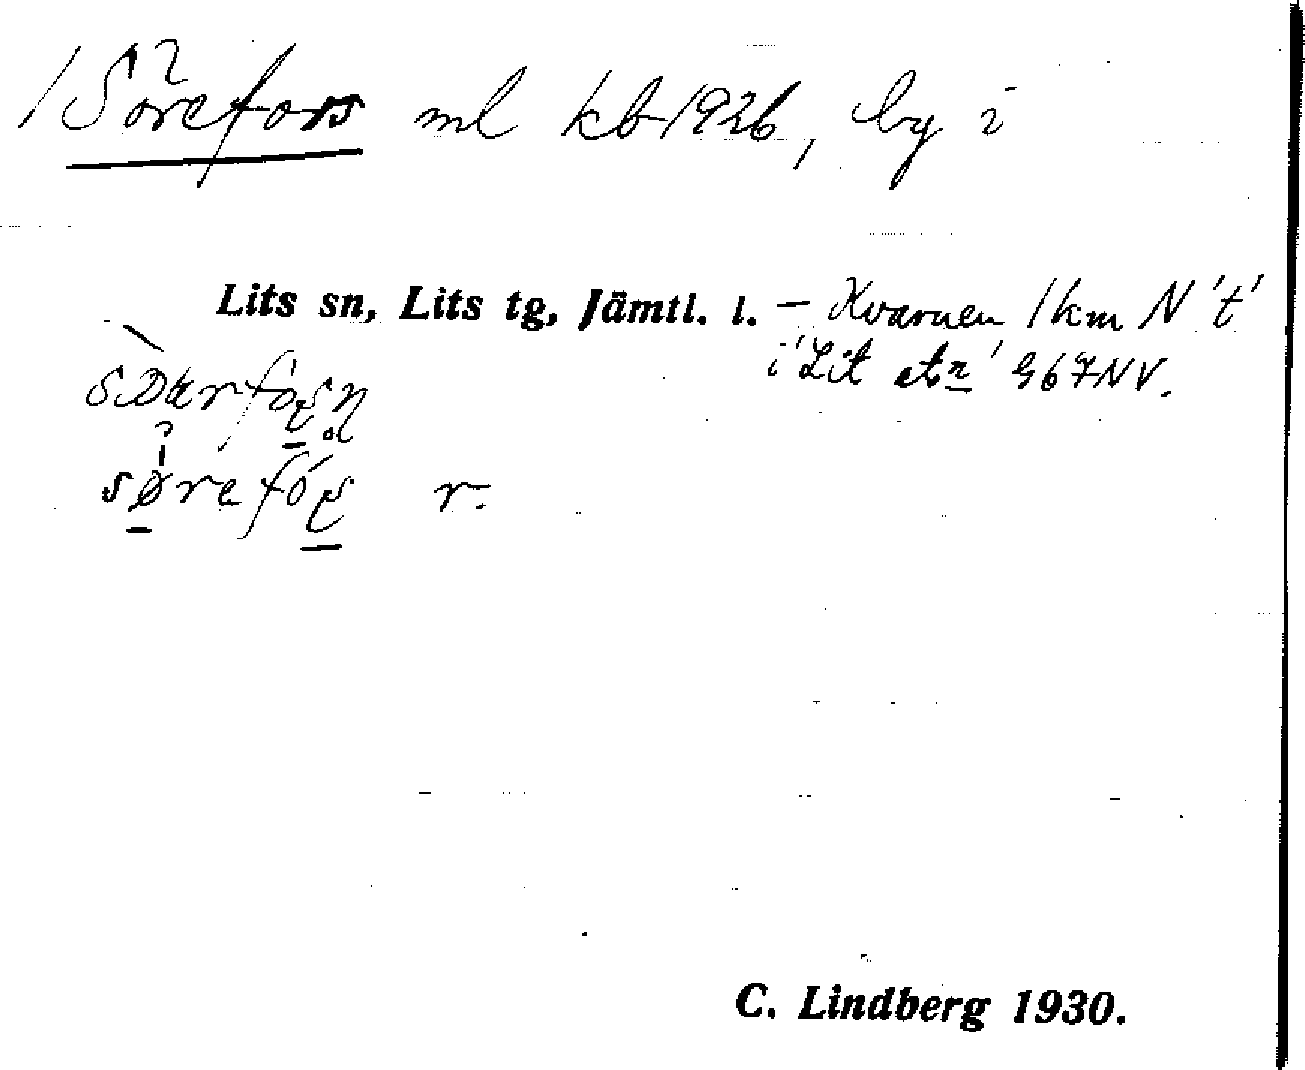 / Sörefors ml kb 1926, by i
Lits sn, Lits tg, Jämtl. l. – Kvarnen 1 km N 't'
i 'Lit stn' G67NV.
r.
C. Lindberg 1930.